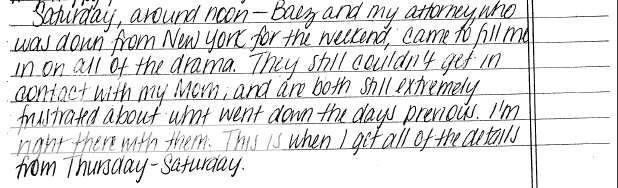 Saturday, around noon - Baez and my attorney who
was down from New York for the weekend, came to fill me
in on all of the drama. They still couldn't get in
contact with my Mom, and are both still extremely
frustrated about what went down the days previous. I'm
right there with them. This is when I get all of the details
from Thursday - Saturday.